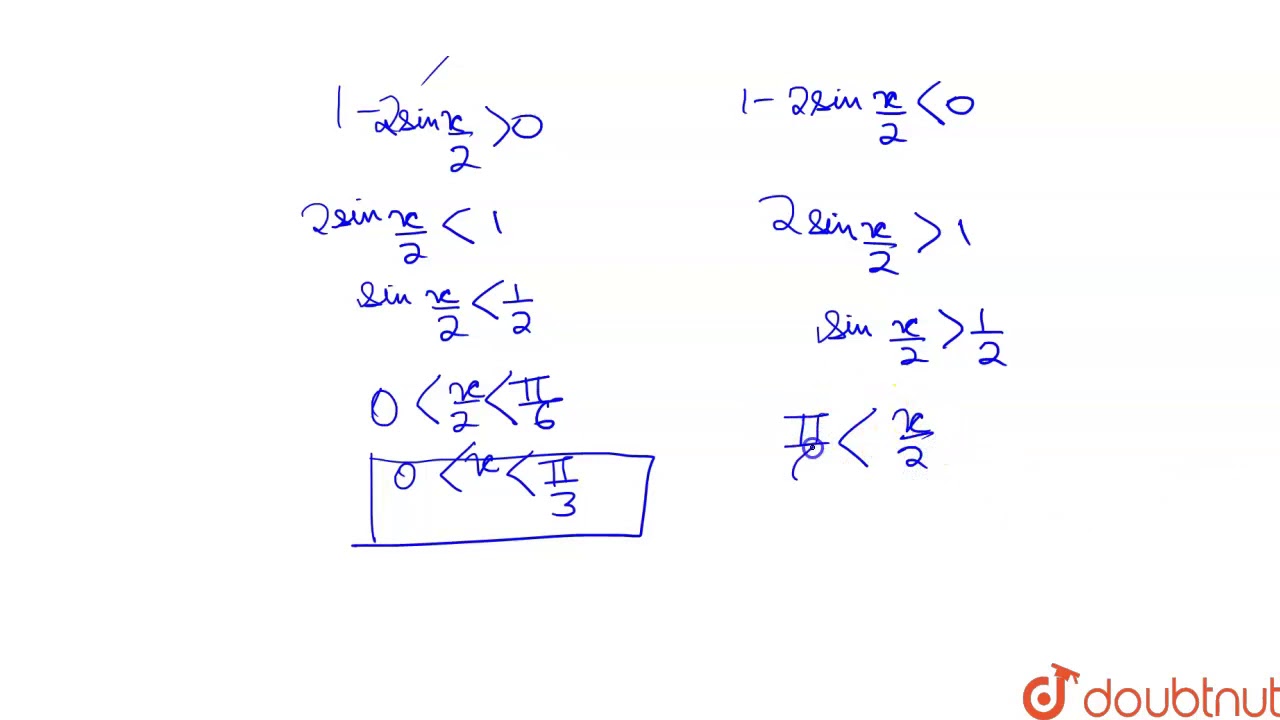 1 - 2sin x/2 > 0
2sin x/2 < 1
sin x/2 < 1/2
0 < x/2 < π/6
0 < x < π/3
1 - 2sin x/2 < 0
2sin x/2 > 1
sin x/2 > 1/2
π/ < x/2
doubtnut